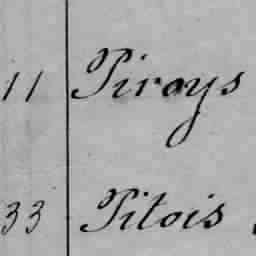 11 Pirays
33 Pitois